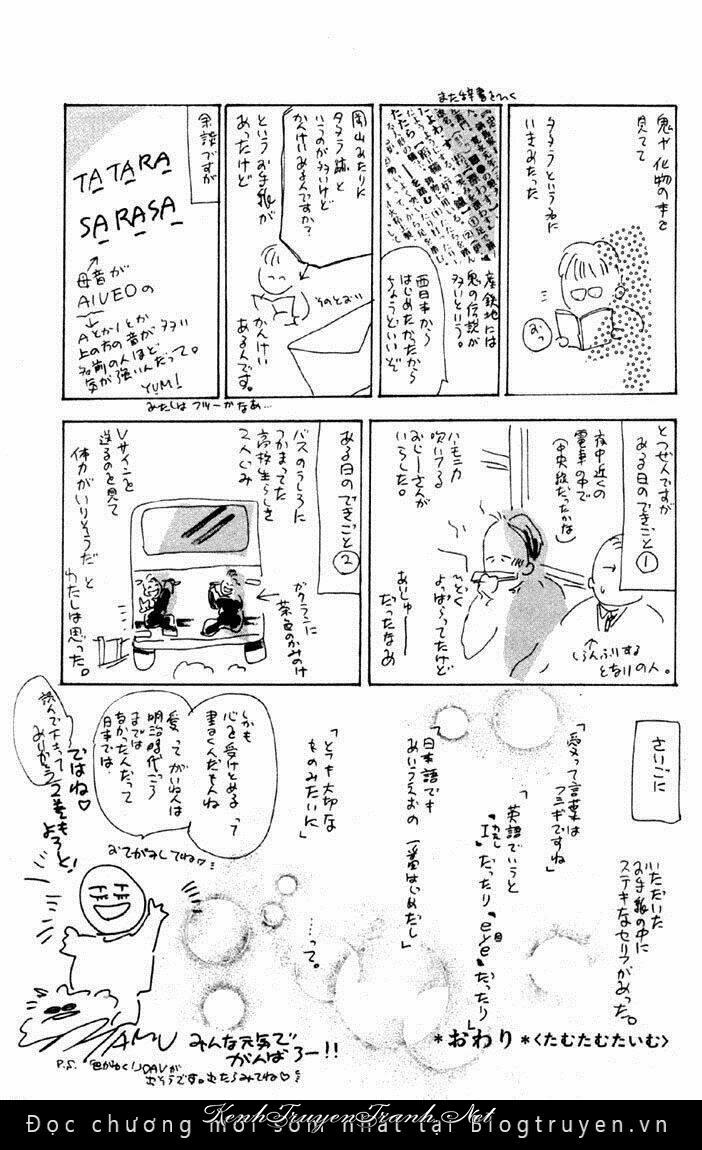 また辞書をひく
鬼や化物の本を
見てて
タタラという名に
いきあたった
産鉄地には
鬼の伝説が
多いという。
西日本から
はじめたかったから
ちょうどいいぞ
岡山あたりに
タタラ跡と
いうのが多いけど
かんけいあるんですか?
というお手紙が
あったけど
そのとおり
かんけい
あるんです。
余談ですが
TATARA
SARASA
母音が
AIUEOの
AとかIとか
上の方の音が多い
名前の人ほど
気が強いんだって。
YUMI
とつぜんですが
ある日のできごと①
夜中近くの
電車の中で
(中央線だったかな)
ハーモニカ
吹いてる
おじーさんが
いらした。
ひどく
よっぱらってたけど
あいしゅー
だったなあ
しらんふりする
となりの人。
ある日のできごと②
バスのうしろに
つかまってた
高校生らしき
2人ぐみ
ガクランに
茶色のかみのけ
Vサインを
送るのを見て
体力がいりそうだ と
わたしは思った。
さいごに
いただいた
お手紙の中に
ステキなセリフがあった。
「愛って言葉は
フシギですね」
「英語でいうと
"I"だったり"eye"だったり」
「日本語でも
あいうえおの 一番はじめだし」
「とても大切な
ものみたいに」
……って。
しかも
心を受けとめる って
書くんだもんね
愛 って がいねんは
明治時代ごろ
までは
日本では
なかったんだって
おてがみしてね♡
ではね♡
読んで下さって
ありがとう
2巻もも
よろしく!
みんな元気で
がんばろー!!
P.S.
*おわり*<たむたむたいむ>
KenhTruyenTranh.Net
Đọc chương mới sớm nhất tại blogtruyen.vn